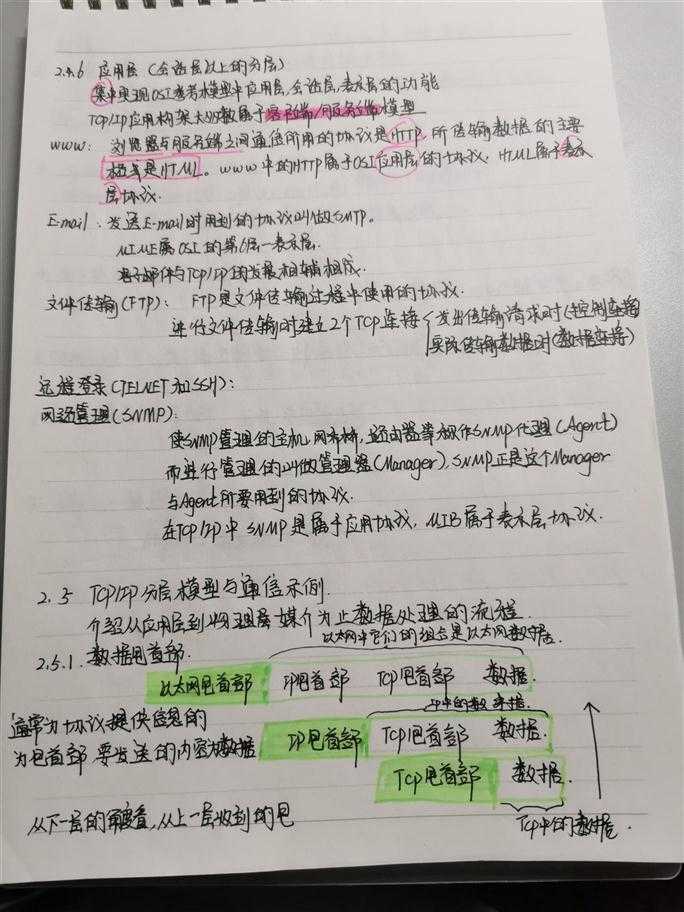 2.4.6 应用层（会话层以上的分层）
集中实现OSI参考模型中应用层,会话层,表示层的功能
TCP/IP应用构架大多数属于客户端/服务端模型
www: 浏览器与服务端之间通信所用的协议是HTTP, 所传输数据的主要
格式是HTML。www中的HTTP属于OSI应用层的协议, HTML属于表示
层协议.
E-mail: 发送E-mail时用到的协议叫做SMTP。
MIME属OSI的第6层—表示层.
电子邮件与TCP/IP的发展相辅相成.
文件传输(FTP): FTP是文件传输过程中使用的协议.
进行文件传输时建立2个TCP连接 发出传输请求时(控制连接)
实际传输数据时(数据连接)
远程登录(TELNET和SSH):
网络管理(SNMP):
使SNMP管理的主机,网桥,路由器等称作SNMP代理(Agent)
而进行管理的叫做管理器(Manager), SNMP正是这个Manager
与Agent所要用到的协议.
在TCP/IP中 SNMP是属于应用协议, MIB属于表示层协议.
2.5 TCP/IP分层模型与通信示例.
介绍从应用层到物理层媒介为止数据处理的流程.
以太网中它们的组合是以太网数据.
2.5.1. 数据包首部.
以太网包首部 IP包首部 TCP包首部 数据.
IP中的数据.
通常为协议提供信息的
为包首部 要发送的内容为数据 IP包首部 TCP包首部 数据.
TCP包首部 数据.
从下一层的角度看,从上一层收到的包
TCP中的数据.